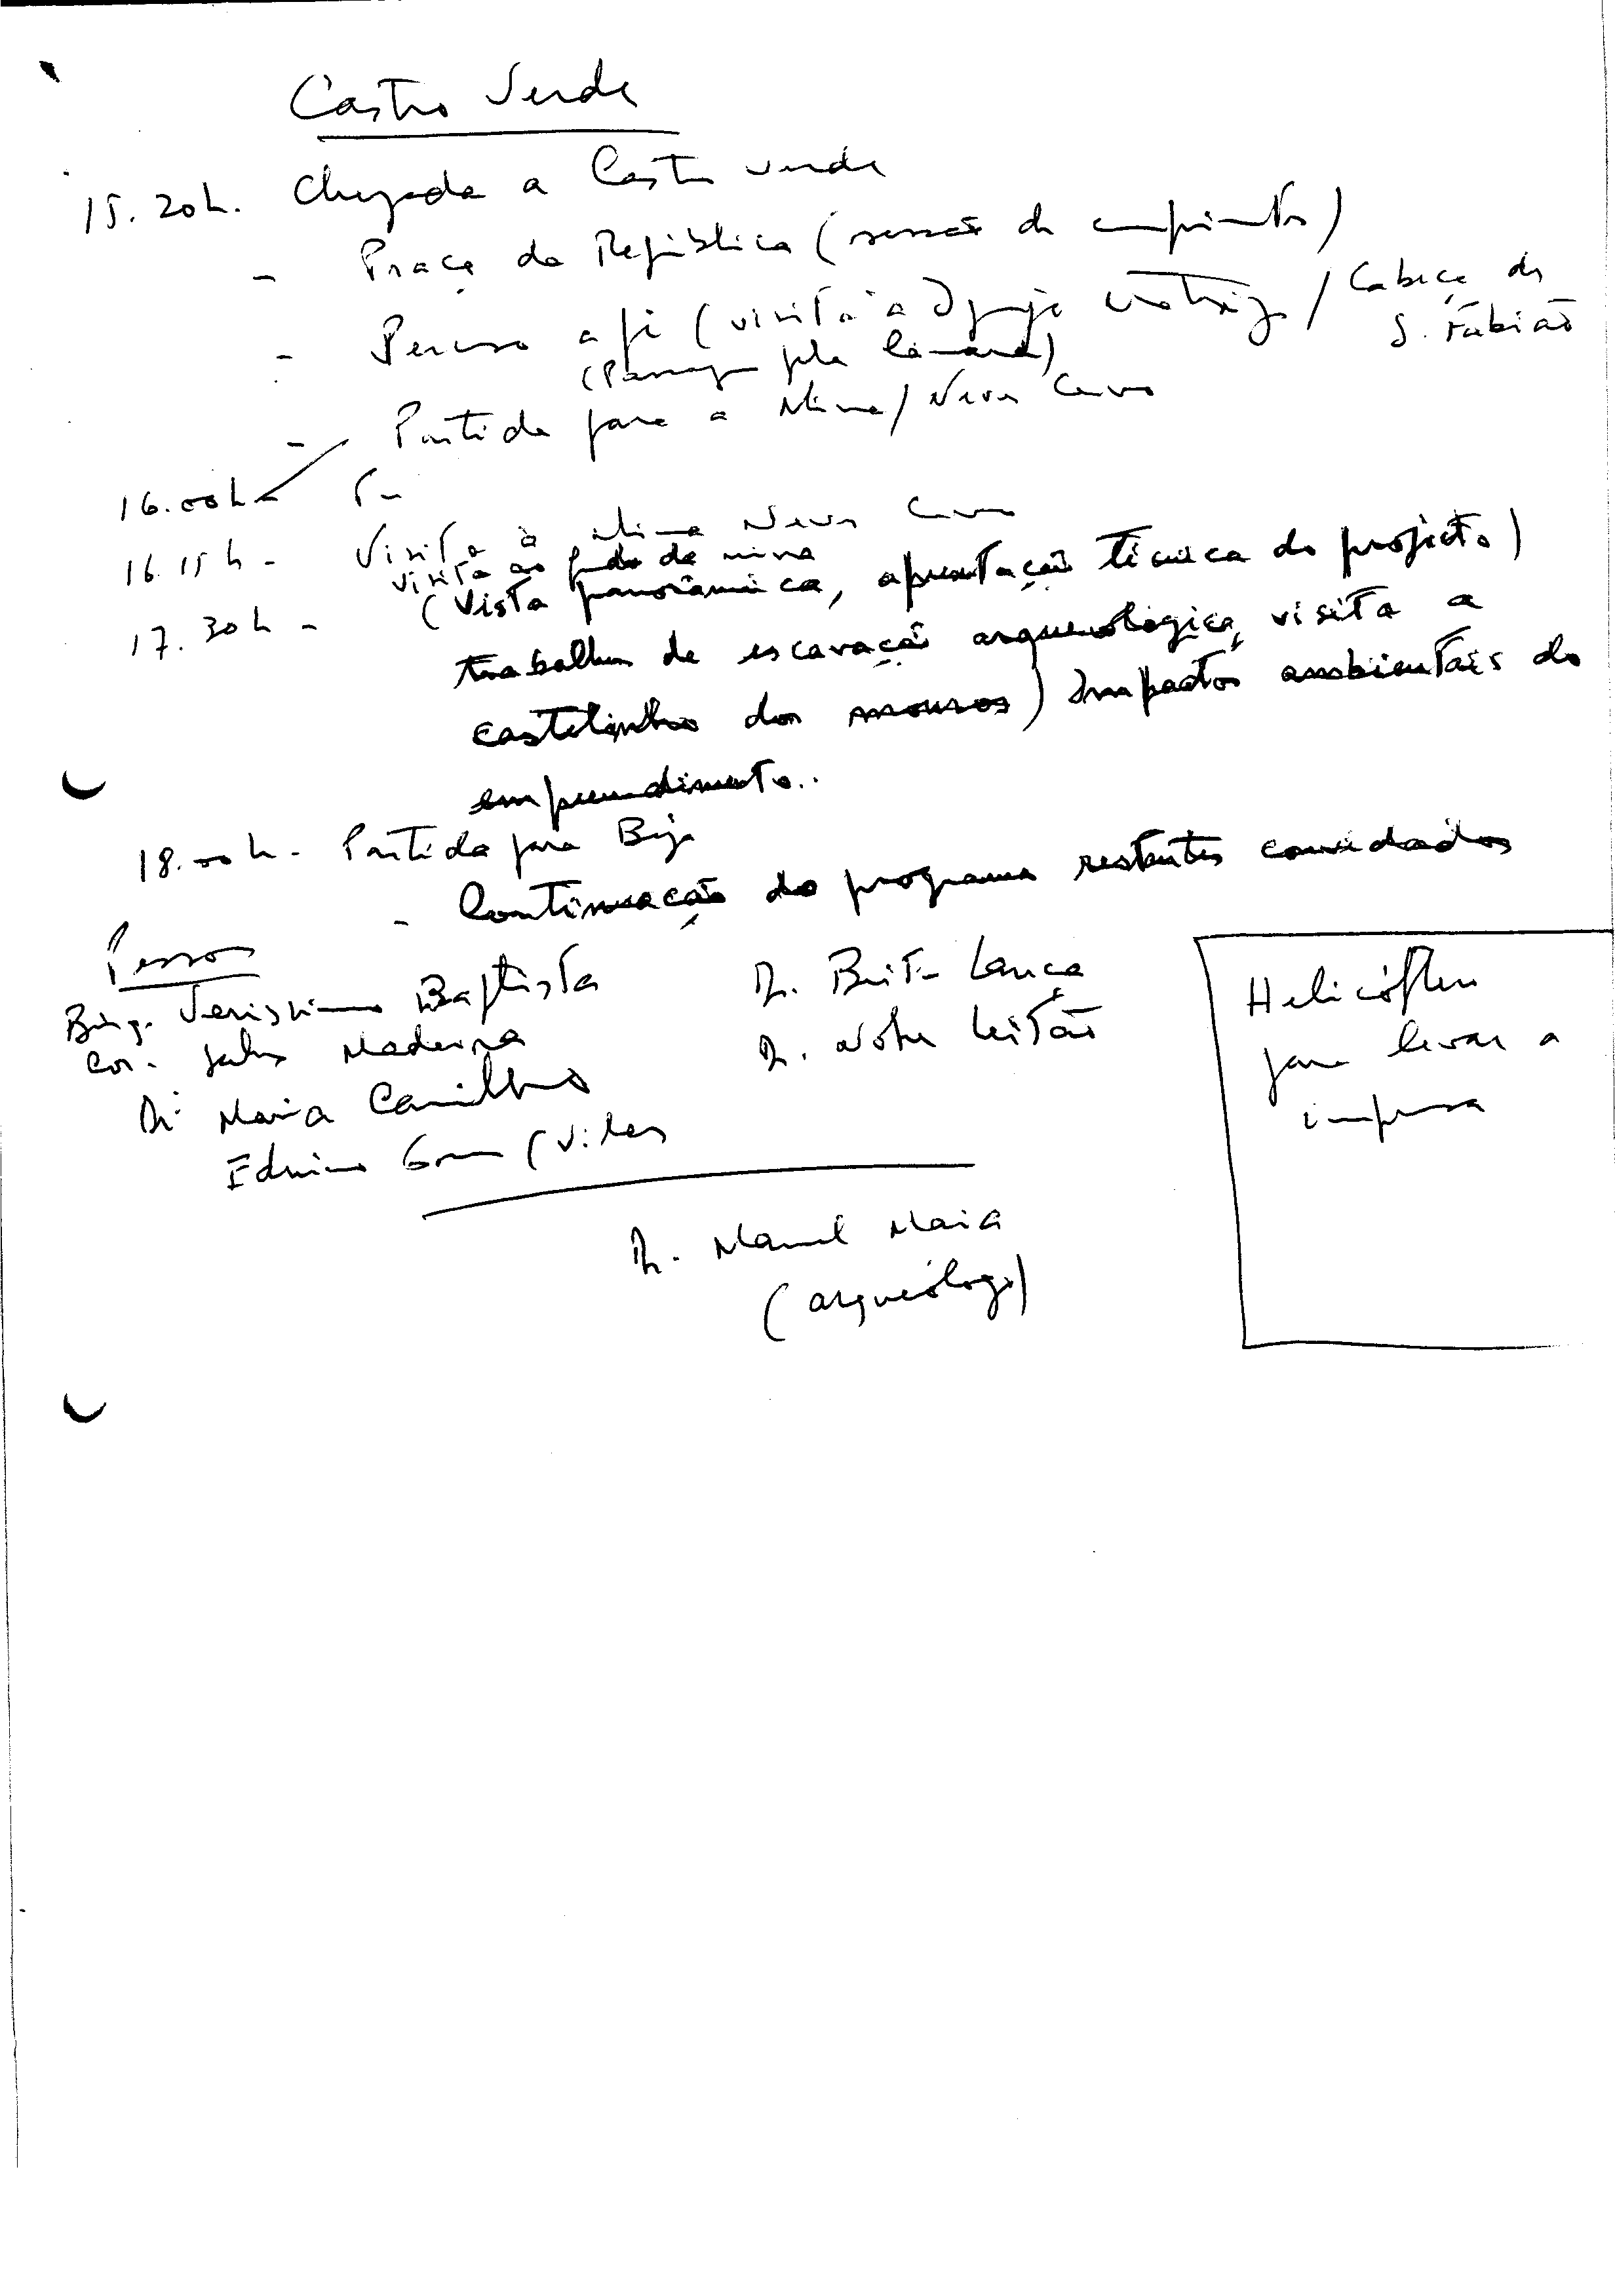 Castro Verde
15.20h. Chegada a Castro Verde
- Praça da República (sessão de cumprimentos)
- Percurso a pé (visita à Igreja Matriz / Cabeça de
S. Fabião
(Passagem pela Câmara)
- Partida para a Mina / Neves Corvo
16.00h -
16.15h - Visita à Mina Neves Corvo
visita ao fundo da mina
17.30h - (Vista panorâmica, apresentação técnica do projecto)
trabalhos de escavação arqueológica, visita a
castelinho dos mouros) Impactos ambientais do
empreendimento..
18.00h - Partida para Beja
- Continuação do programa restantes convidados
Brig. Veríssimo Baptista
Dr. Brito Lança
Cor. Madeira
Dr. Leitão
Drª Maria Carrilho
(Vilas
Dr. Manuel Maia
(arqueólogo)
Helicóptero
para levar a
imprensa